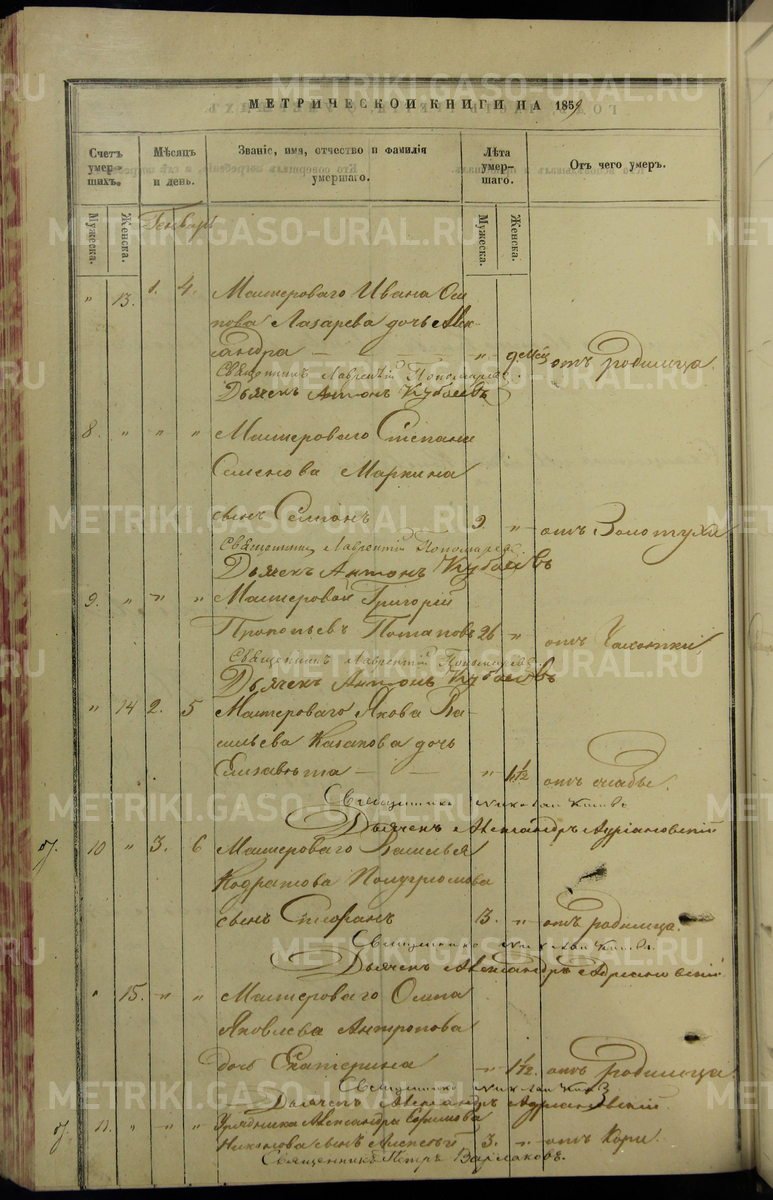 МЕТРИЧЕСКОЙ КНИГИ НА 1859
Счетъ умер- шихъ. Мѣсяцъ и день. Званіе, имя, отчество и фамилія умершаго. Лѣта умер- шаго. Отъ чего умеръ.
Мужеска. Женска. Мужеска. Женска.
Генварь
" 13. 1. 4. Мастероваго Ивана Оси-
пова Лазарева дочь Алек-
сандра — — — " 9 мѣс отъ родимца.
Священникъ Лаврентій Пономаревъ
Дьячекъ Антонъ Кубасовъ
8. " " " Мастероваго Степана
Семенова Маркина
сынъ Семіонъ 9 " отъ Золотухи
Священникъ Лаврентій Пономаревъ
Дьячекъ Антонъ Кубасовъ
9. " " " Мастеровой Григорій
Прокопьевъ Потаповъ 26 " отъ Чахотки
Священникъ Лаврентій Пономаревъ
Дьячекъ Антонъ Кубасовъ
" 14 2. 5 Мастероваго Якова Ва-
сильева Казакова дочь
Елизавета — — " отъ слабы.
Священникъ Николай
Дьячекъ Александръ Адріановскій
10 " 3. 6 Мастероваго Василья
Кодратова Полугромова
сынъ Стефанъ 3. " отъ родимца.
Священникъ Николай
Дьячекъ Александръ Адріановскій
" 15. " " Мастероваго Осипа
Яковлева Антропова
дочь Екатерина " 1½. отъ родимца
Священникъ Николай
Дьячекъ Александръ Адріановскій
11. " " " Урядника Александра Ефимова
Николова сынъ Алексѣй 3. " отъ Кори.
Священникъ Петръ Варлаковъ.
METRIKI.GASO-URAL.RU